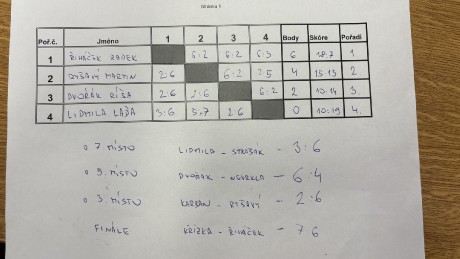 Strana 1
Poř.č. Jméno 1 2 3 4 Body Skóre Pořadí
1 ŘIHÁČEK RADEK 6:2 6:2 6:3 6 18:7 1.
2 RYŠAVÝ MARTIN 2:6 6:2 7:5 4 15:13 2.
3 DVOŘÁK RÍŠA 2:6 2:6 6:2 2 10:14 3.
4 LIDMILA LÁĎA 3:6 5:7 2:6 0 10:19 4.
O 7 MÍSTO LIDMILA - STRAŠÁK - 3:6
O 5. MÍSTO DVOŘÁK - - 6:4
O 3 MÍSTO KARBAN - RYŠAVÝ - 2:6
FINÁLE KŘIŽKA - ŘIHÁČEK - 7 6